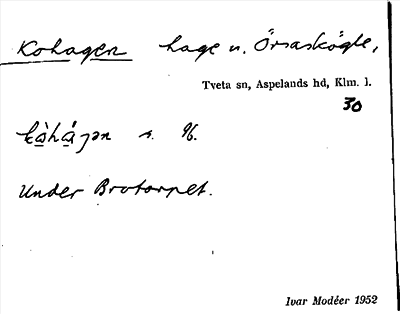 Kohagen hage u. Örsaskögle,
Tveta sn, Aspelands hd, Klm. l.
30
s. 96.
Under Brotorpet.
Ivar Modéer 1952